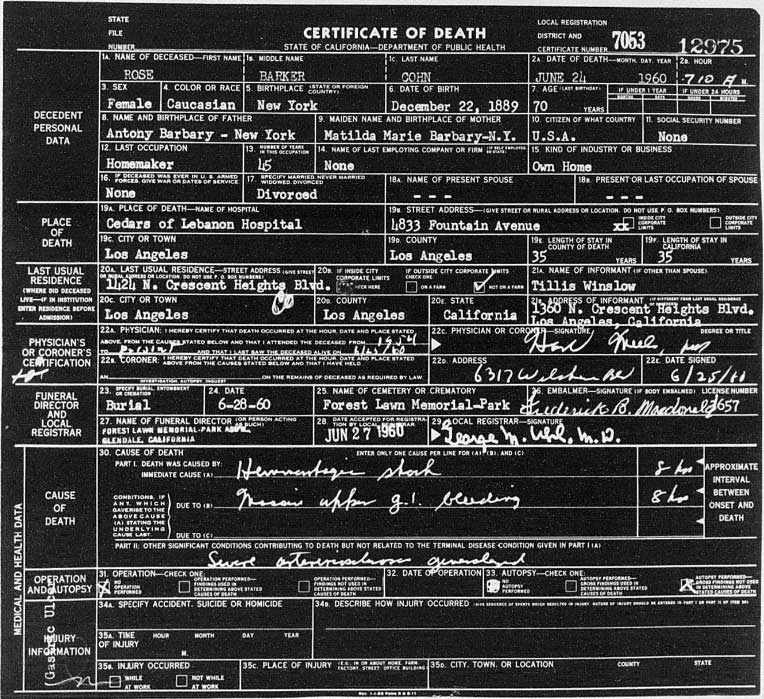 STATE FILE NUMBER
CERTIFICATE OF DEATH
STATE OF CALIFORNIA—DEPARTMENT OF PUBLIC HEALTH
LOCAL REGISTRATION DISTRICT AND CERTIFICATE NUMBER 7053 12975
DECEDENT PERSONAL DATA
1A. NAME OF DECEASED—FIRST NAME 1B. MIDDLE NAME 1C. LAST NAME 2A. DATE OF DEATH—MONTH, DAY, YEAR 2B. HOUR
ROSE BARKER COHN JUNE 24 1960 710 A M.
3. SEX 4. COLOR OR RACE 5. BIRTHPLACE (STATE OR FOREIGN COUNTRY) 6. DATE OF BIRTH 7. AGE (LAST BIRTHDAY) IF UNDER 1 YEAR IF UNDER 24 HOURS
Female Caucasian New York December 22, 1889 70 YEARS
8. NAME AND BIRTHPLACE OF FATHER 9. MAIDEN NAME AND BIRTHPLACE OF MOTHER 10. CITIZEN OF WHAT COUNTRY 11. SOCIAL SECURITY NUMBER
Antony Barbary - New York Matilda Marie Barbary-N.Y. U.S.A. None
12. LAST OCCUPATION 13. NUMBER OF YEARS IN THIS OCCUPATION 14. NAME OF LAST EMPLOYING COMPANY OR FIRM (IF SELF EMPLOYED SO STATE) 15. KIND OF INDUSTRY OR BUSINESS
Homemaker 45 None Own Home
16. IF DECEASED WAS EVER IN U. S. ARMED FORCES, GIVE WAR OR DATES OF SERVICE 17. SPECIFY MARRIED, NEVER MARRIED WIDOWED, DIVORCED 18A. NAME OF PRESENT SPOUSE 18B. PRESENT OR LAST OCCUPATION OF SPOUSE
None Divorced - - - - - -
PLACE OF DEATH
19A. PLACE OF DEATH—NAME OF HOSPITAL 19B. STREET ADDRESS—(GIVE STREET OR RURAL ADDRESS OR LOCATION. DO NOT USE P. O. BOX NUMBERS)
Cedars of Lebanon Hospital 4833 Fountain Avenue xx INSIDE CITY CORPORATE LIMITS OUTSIDE CITY CORPORATE LIMITS
19C. CITY OR TOWN 19D. COUNTY 19E. LENGTH OF STAY IN COUNTY OF DEATH 19F. LENGTH OF STAY IN CALIFORNIA
Los Angeles Los Angeles 35 YEARS 35 YEARS
LAST USUAL RESIDENCE (WHERE DID DECEASED LIVE—IF IN INSTITUTION ENTER RESIDENCE BEFORE ADMISSION)
20A. LAST USUAL RESIDENCE—STREET ADDRESS (GIVE STREET OR RURAL ADDRESS OR LOCATION. DO NOT USE P. O. BOX NUMBERS) 20B. IF INSIDE CITY CORPORATE LIMITS CHECK HERE IF OUTSIDE CITY CORPORATE LIMITS CHECK ONE ON A FARM NOT ON A FARM 21A. NAME OF INFORMANT (IF OTHER THAN SPOUSE)
1424 N. Crescent Heights Blvd. Tillis Winslow
20C. CITY OR TOWN 20D. COUNTY 20E. STATE 21B. ADDRESS OF INFORMANT (IF DIFFERENT FROM LAST USUAL RESIDENCE)
Los Angeles Los Angeles California 1360 N. Crescent Heights Blvd.
Los Angeles, California
PHYSICIAN'S OR CORONER'S CERTIFICATION
22A. PHYSICIAN: I HEREBY CERTIFY THAT DEATH OCCURRED AT THE HOUR, DATE AND PLACE STATED ABOVE, FROM THE CAUSES STATED BELOW AND THAT I ATTENDED THE DECEASED FROM 1954 TO AND THAT I LAST SAW THE DECEASED ALIVE ON 6/23/60
22B. CORONER: I HEREBY CERTIFY THAT DEATH OCCURRED AT THE HOUR, DATE AND PLACE STATED ABOVE FROM THE CAUSES STATED BELOW AND THAT I HAVE HELD AN ON THE REMAINS OF DECEASED AS REQUIRED BY LAW
INVESTIGATION, AUTOPSY, INQUEST
22C. PHYSICIAN OR CORONER—SIGNATURE DEGREE OR TITLE
22D. ADDRESS 22E. DATE SIGNED
6317 Wilshire Bl 6/25/60
FUNERAL DIRECTOR AND LOCAL REGISTRAR
23. SPECIFY BURIAL, ENTOMBMENT OR CREMATION 24. DATE 25. NAME OF CEMETERY OR CREMATORY 26. EMBALMER—SIGNATURE (IF BODY EMBALMED) LICENSE NUMBER
Burial 6-28-60 Forest Lawn Memorial-Park Frederick B. Macdonald 3657
27. NAME OF FUNERAL DIRECTOR (OR PERSON ACTING AS SUCH) 28. DATE ACCEPTED FOR REGISTRATION BY LOCAL REGISTRAR 29. LOCAL REGISTRAR—SIGNATURE
FOREST LAWN MEMORIAL-PARK ASSN. JUN 27 1960 George M. Uhl, M.D.
GLENDALE, CALIFORNIA
MEDICAL AND HEALTH DATA
CAUSE OF DEATH
30. CAUSE OF DEATH ENTER ONLY ONE CAUSE PER LINE FOR (A), (B), AND (C)
PART I. DEATH WAS CAUSED BY:
IMMEDIATE CAUSE (A) Hemorrhagic shock 8 hrs
CONDITIONS, IF ANY, WHICH GAVE RISE TO THE ABOVE CAUSE (A) STATING THE UNDERLYING CAUSE LAST.
DUE TO (B) Massive upper g.i. bleeding 8 hrs
DUE TO (C)
APPROXIMATE INTERVAL BETWEEN ONSET AND DEATH
PART II: OTHER SIGNIFICANT CONDITIONS CONTRIBUTING TO DEATH BUT NOT RELATED TO THE TERMINAL DISEASE CONDITION GIVEN IN PART I (A)
Severe arteriosclerosis generalized
OPERATION AND AUTOPSY
31. OPERATION—CHECK ONE: 32. DATE OF OPERATION 33. AUTOPSY—CHECK ONE:
NO OPERATION PERFORMED OPERATION PERFORMED—FINDINGS USED IN DETERMINING ABOVE STATED CAUSES OF DEATH OPERATION PERFORMED—FINDINGS NOT USED IN DETERMINING ABOVE STATED CAUSES OF DEATH
NO AUTOPSY PERFORMED AUTOPSY PERFORMED—GROSS FINDINGS USED IN DETERMINING ABOVE STATED CAUSES OF DEATH AUTOPSY PERFORMED—GROSS FINDINGS NOT USED IN DETERMINING ABOVE STATED CAUSES OF DEATH
INJURY INFORMATION
Gastric Ulcer
34A. SPECIFY ACCIDENT, SUICIDE OR HOMICIDE 34B. DESCRIBE HOW INJURY OCCURRED (GIVE SEQUENCE OF EVENTS WHICH RESULTED IN INJURY. NATURE OF INJURY SHOULD BE ENTERED IN PART I OR PART II OF ITEM 30)
35A. TIME OF INJURY HOUR MONTH DAY YEAR
M.
35B. INJURY OCCURRED 35C. PLACE OF INJURY (E.G., IN OR ABOUT HOME, FARM, FACTORY, STREET, OFFICE BUILDING) 35D. CITY, TOWN, OR LOCATION COUNTY STATE
WHILE AT WORK NOT WHILE AT WORK